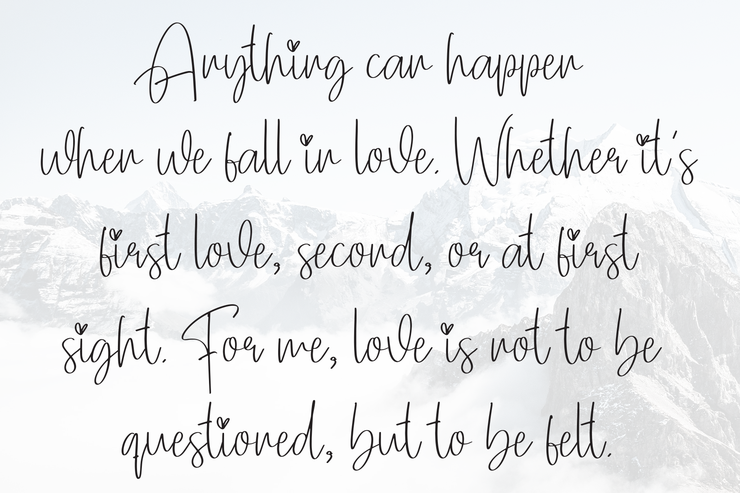 Anything can happen
when we fall in love. Whether it's
first love, second, or at first
sight. For me, love is not to be
questioned, but to be felt.